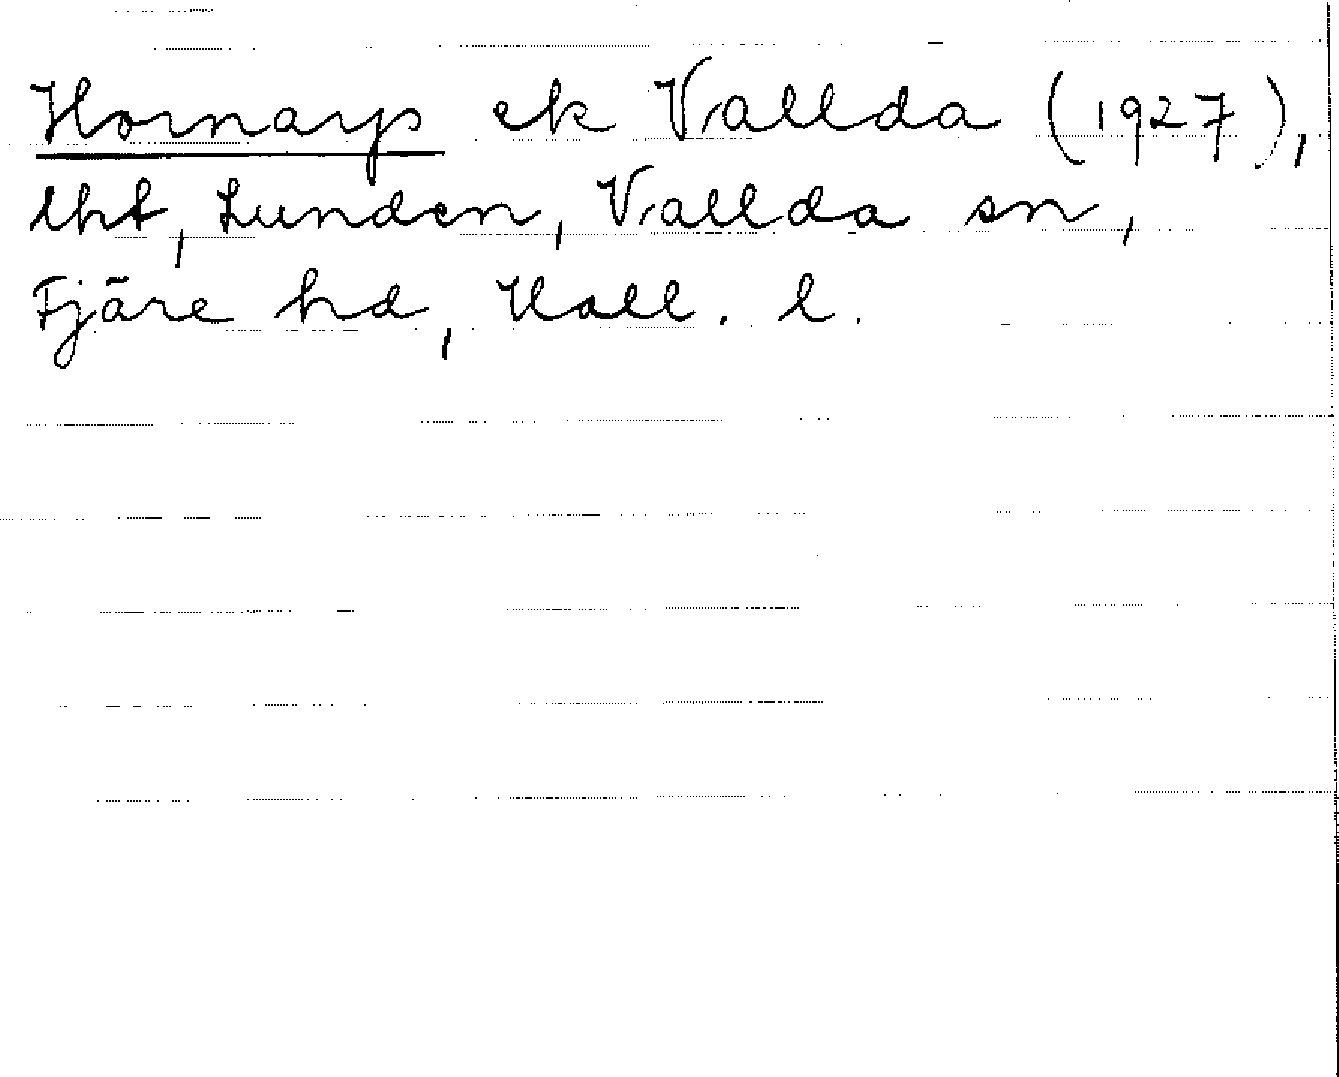 Hornarp ek Vallda (1927),
lht, Lunden, Vallda sn,
Fjäre hd, Hall. l.